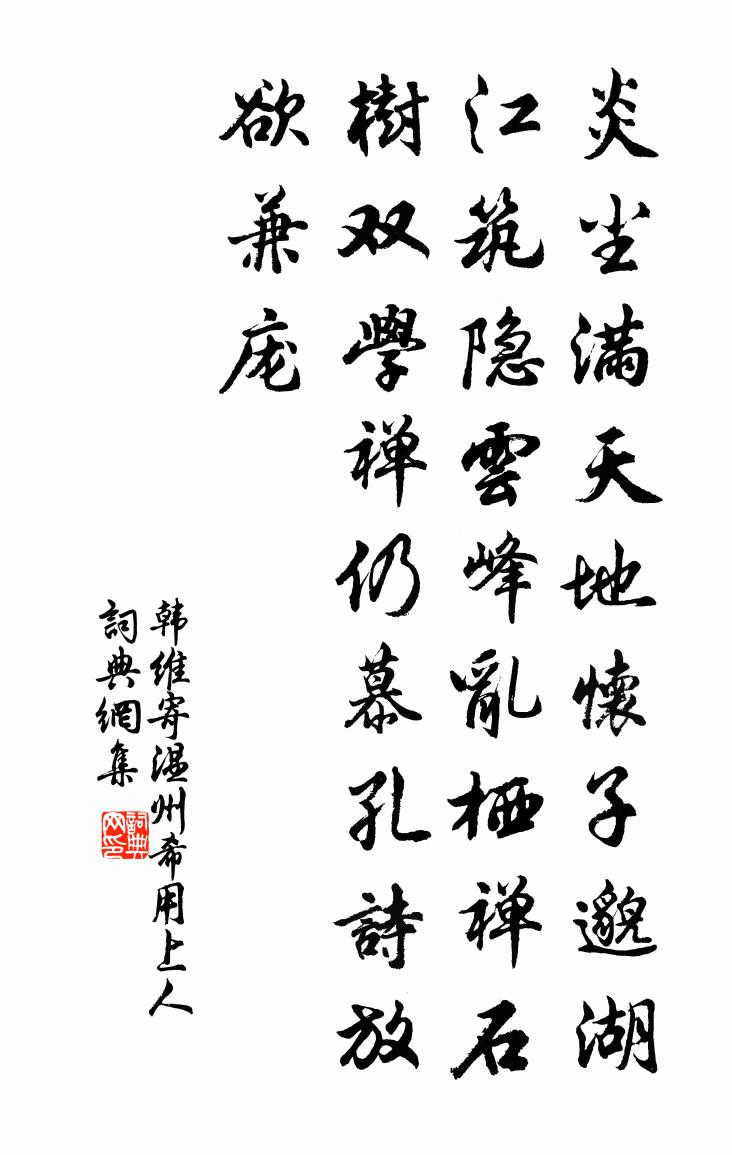 炎尘满天地懷子邈湖
江筑隐雲峰亂栖禅石
樹双學禅仍慕孔詩放
欲兼庞
韩维寄温州希用上人
詞典網集
詞典网